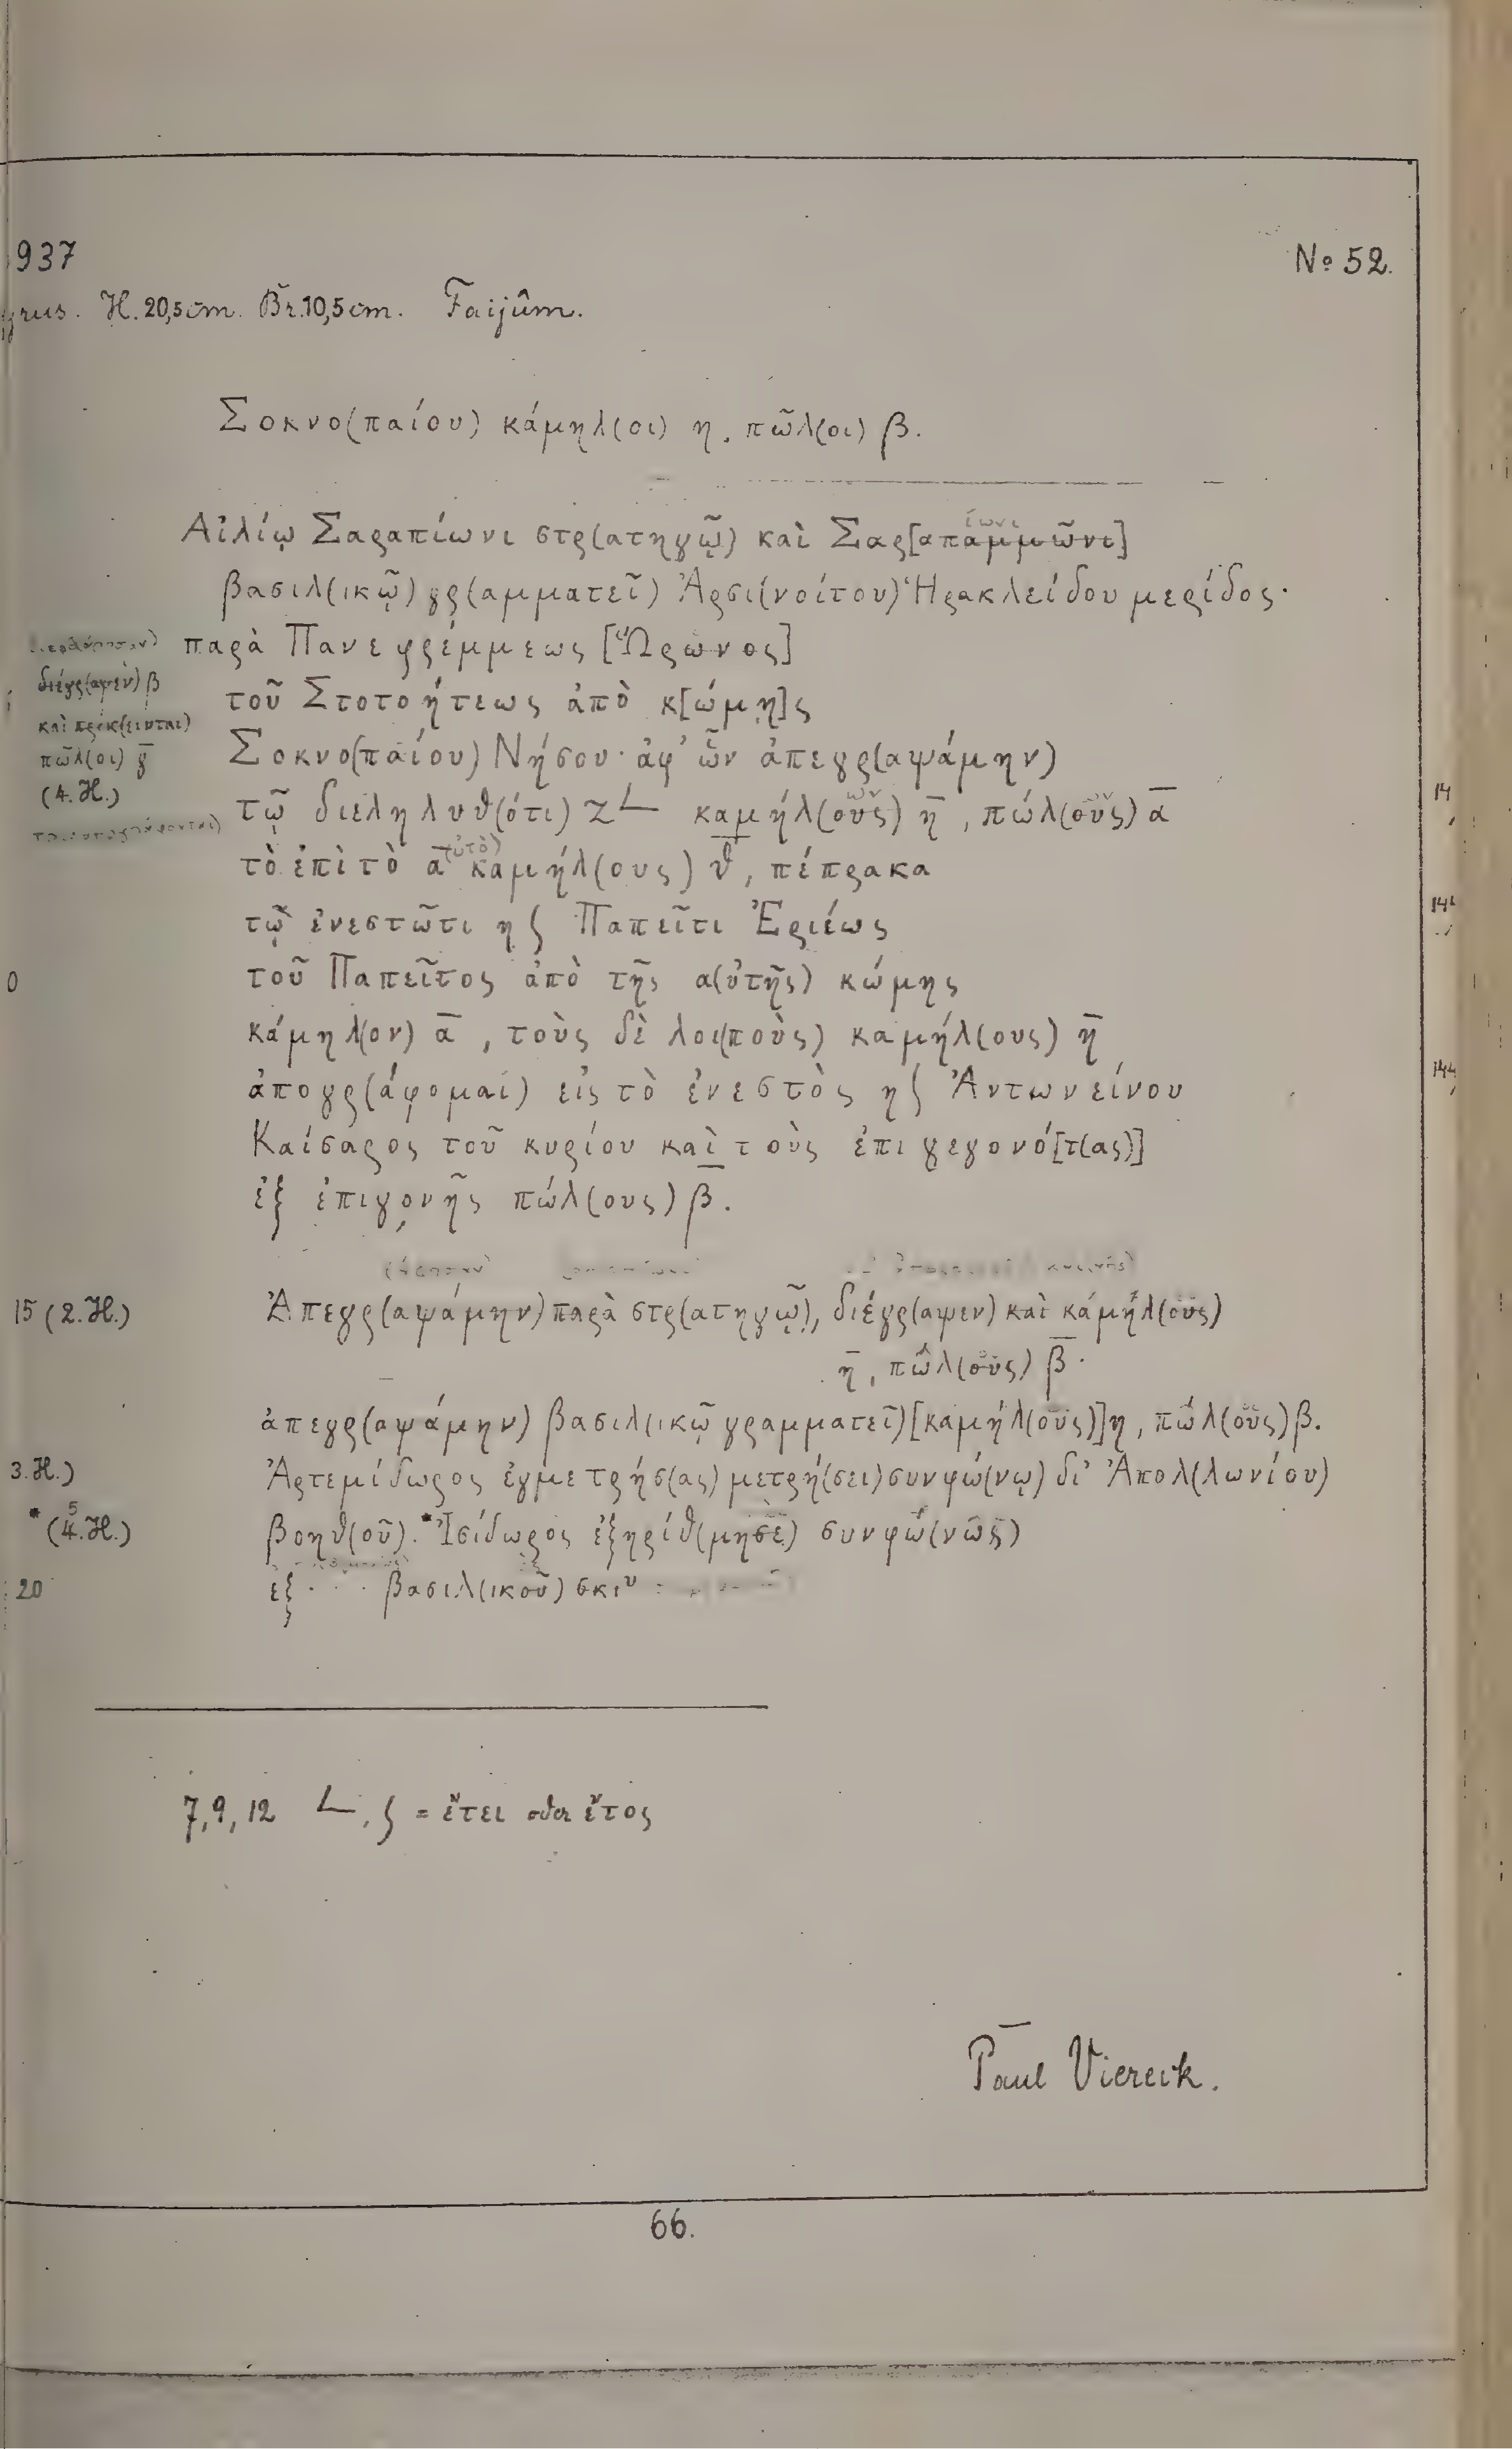 937
No 52.
H. 20,5 cm. Br. 10,5 cm. Faijûm.
Σοκνο(παίου) κάμηλ(οι) η, πῶλ(οι) β.
Αἰλίῳ Σαραπίωνι στρ(ατηγῷ) καὶ Σαρ[απαμμῶνι]
ίωνι
βασιλ(ικῷ) γρ(αμματεῖ) Ἀρσι(νοίτου) Ἡρακλείδου μερίδος·
παρὰ Πανεφρέμμεως [Ὥρωνος]
διέγρ(αψεν) β
τοῦ Στοτοήτεως ἀπὸ κ[ώμη]ς
πῶλ(οι) γ̅
Σοκνο(παίου) Νήσου· ἀφ' ὧν ἀπεγρ(αψάμην)
(4. H.)
τῷ διεληλυθ(ότι) ζ L καμήλ(ους) η̅, πώλ(ους) α̅
τὸ ἐπὶ τὸ α(ὐτὸ) καμήλ(ους) θ̅, πέπρακα
τῷ ἐνεστῶτι η ς Παπεῖτι Ἑριέως
0
τοῦ Παπεῖτος ἀπὸ τῆς α(ὐτῆς) κώμης
κάμηλ(ον) α̅, τοὺς δὲ λοι(ποὺς) καμήλ(ους) η̅
ἀπογρ(άφομαι) εἰς τὸ ἐνεστὸς η ς Ἀντωνείνου
Καίσαρος τοῦ κυρίου καὶ τοὺς ἐπιγεγονό[τ(ας)]
ἐξ ἐπιγονῆς πώλ(ους) β̅.
15 (2. H.) Ἀπεγρ(αψάμην) παρὰ στρ(ατηγῷ), διέγρ(αψεν) καὶ κάμήλ(ους)
η̅, πώλ(ους) β̅·
ἀπεγρ(αψάμην) βασιλ(ικῷ γραμματεῖ) [καμήλ(ους)] η, πώλ(ους) β.
3. H.) Ἀρτεμίδωρος ἐγμετρήσ(ας) μετρή(σει) συνφώ(νῳ) δι' Ἀπολ(λωνίου)
*(4. H.) βοηθ(οῦ).* Ἰσίδωρος ἐξηρίθ(μησε) συνφώ(νως)
5
20 ἐξ . . . βασιλ(ικοῦ) σκιυ
7, 9, 12 L, ς = ἔτει oder ἔτος
Paul Viereck.
66.